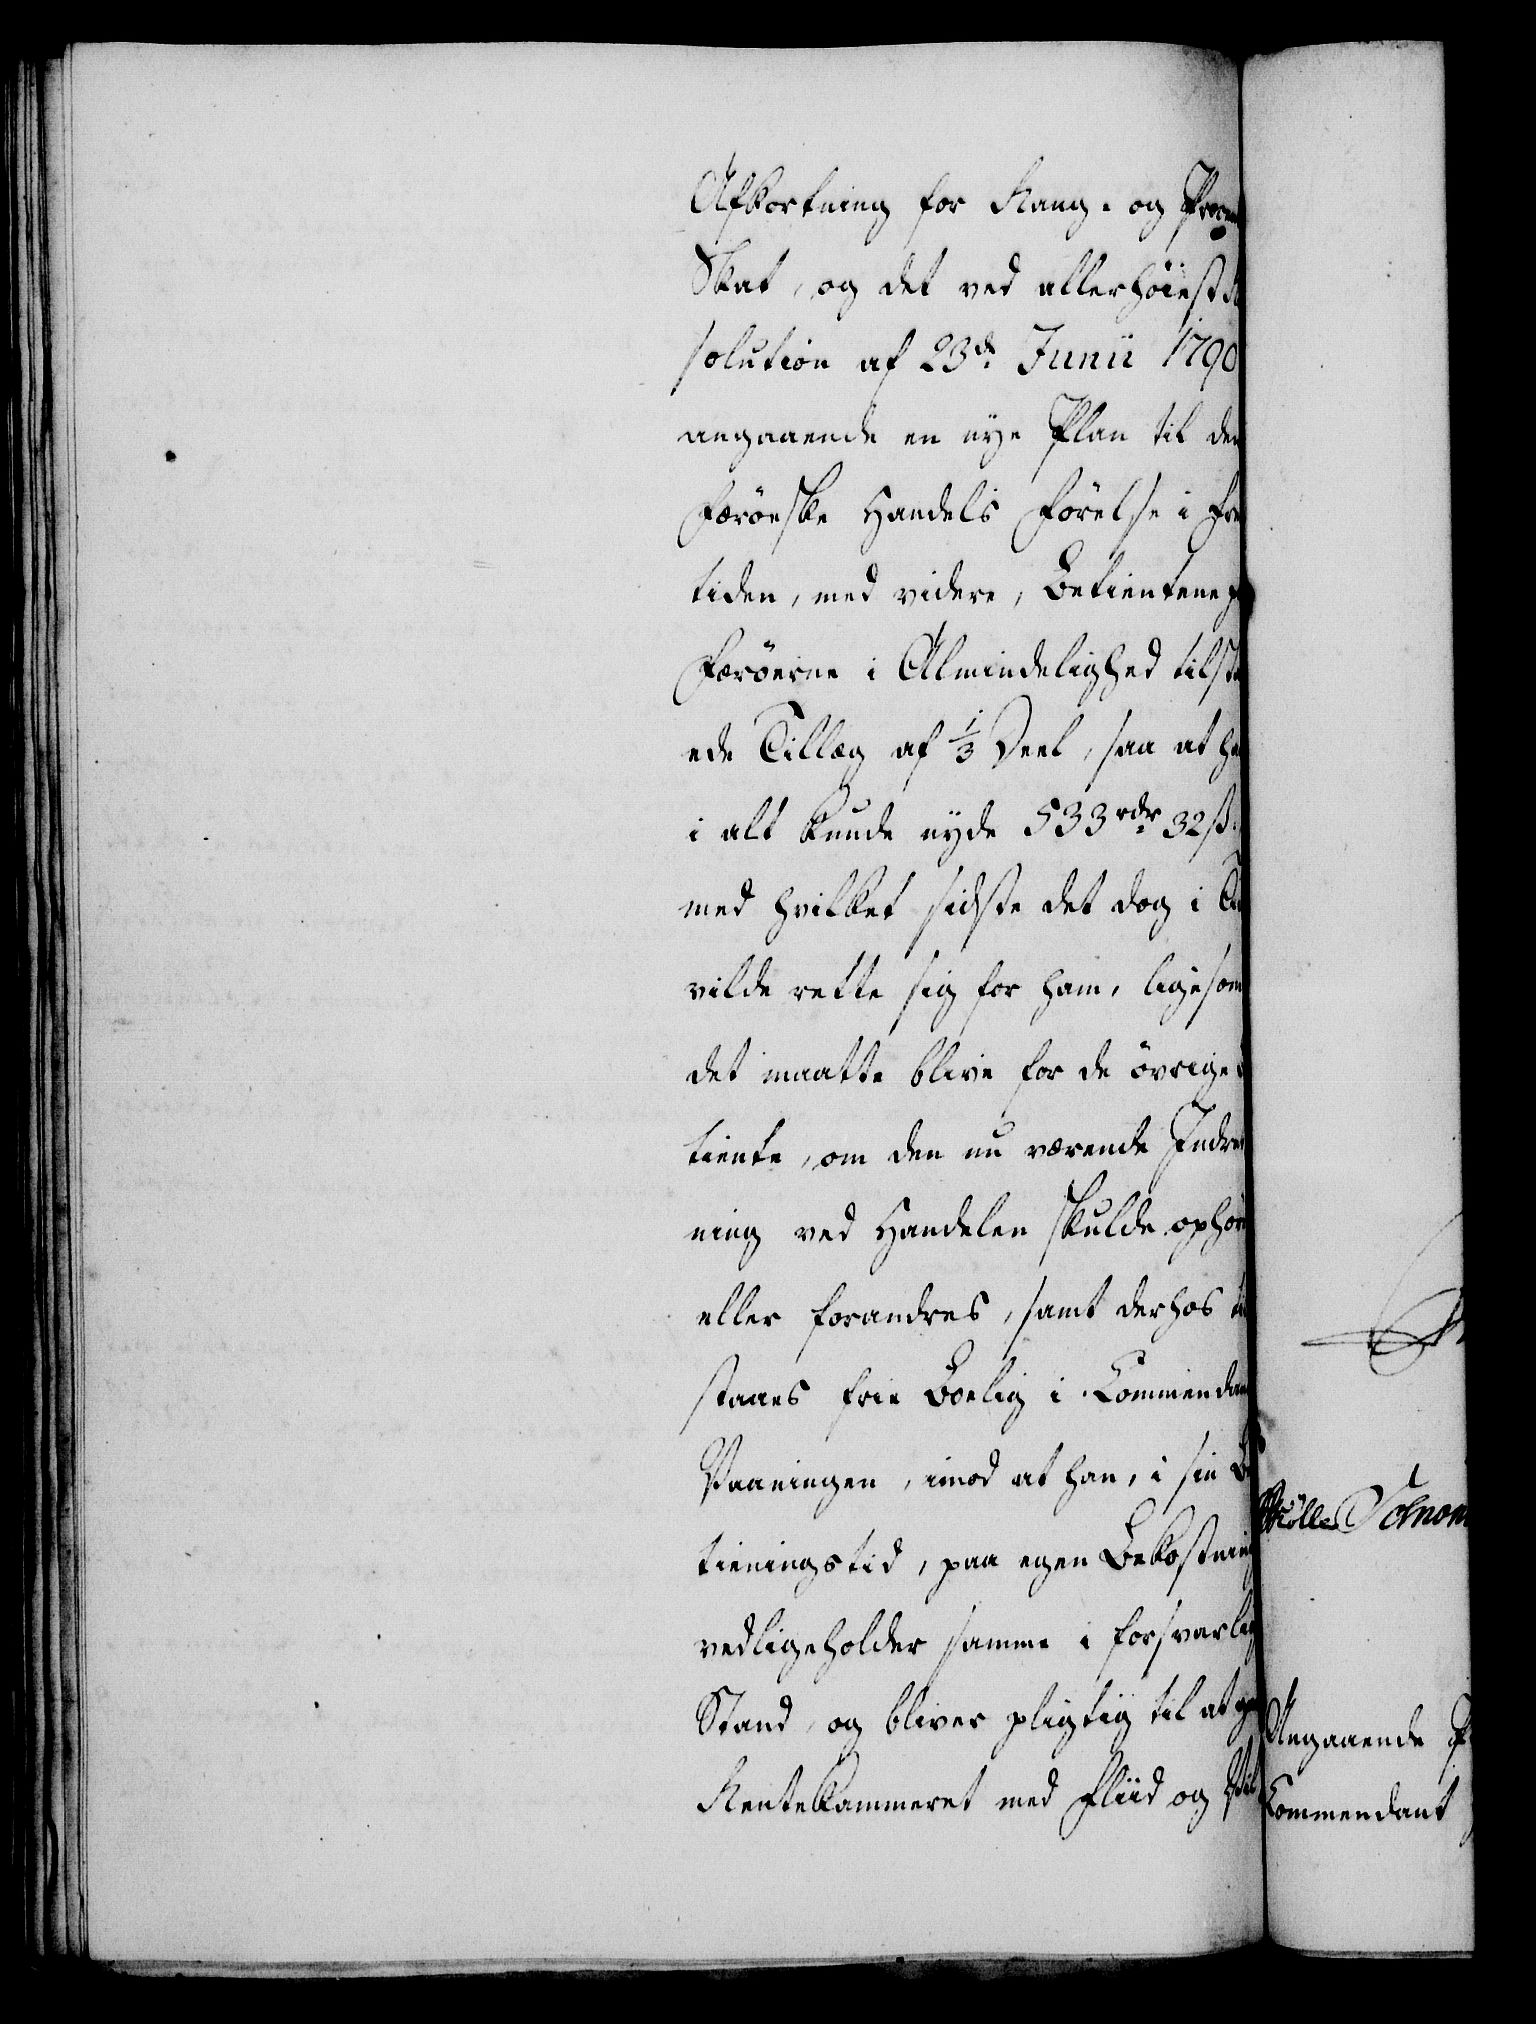 Afkortning for Rang- og
Skat, og det ved allerhöiest
solution af 23de Junii 1790
angaaende en nye Plan til den
Færöeske Handels Förelse i
tiden, med videre, Betientene
Færöerne i Almindelighed
ede Tillæg af 1/3 Deel, saa at
i alt kunde nyde 533 rdr 32 ß.
med hvilket sidste det dog i
vilde rette sig for ham, ligesom
det maatte blive for de övrige
tiente, om den nu værende
ning ved Handelen skulde ophöre
eller forandres, samt derhos
staaes frie Boelig i
Vaaningen, imod at han, i sin
tieningstid, paa egen Bekostning
vedligeholder samme i forsvarlig
Stand, og bliver pligtig til at
Rentekammeret med Fliid og
Angaaende
Commendant